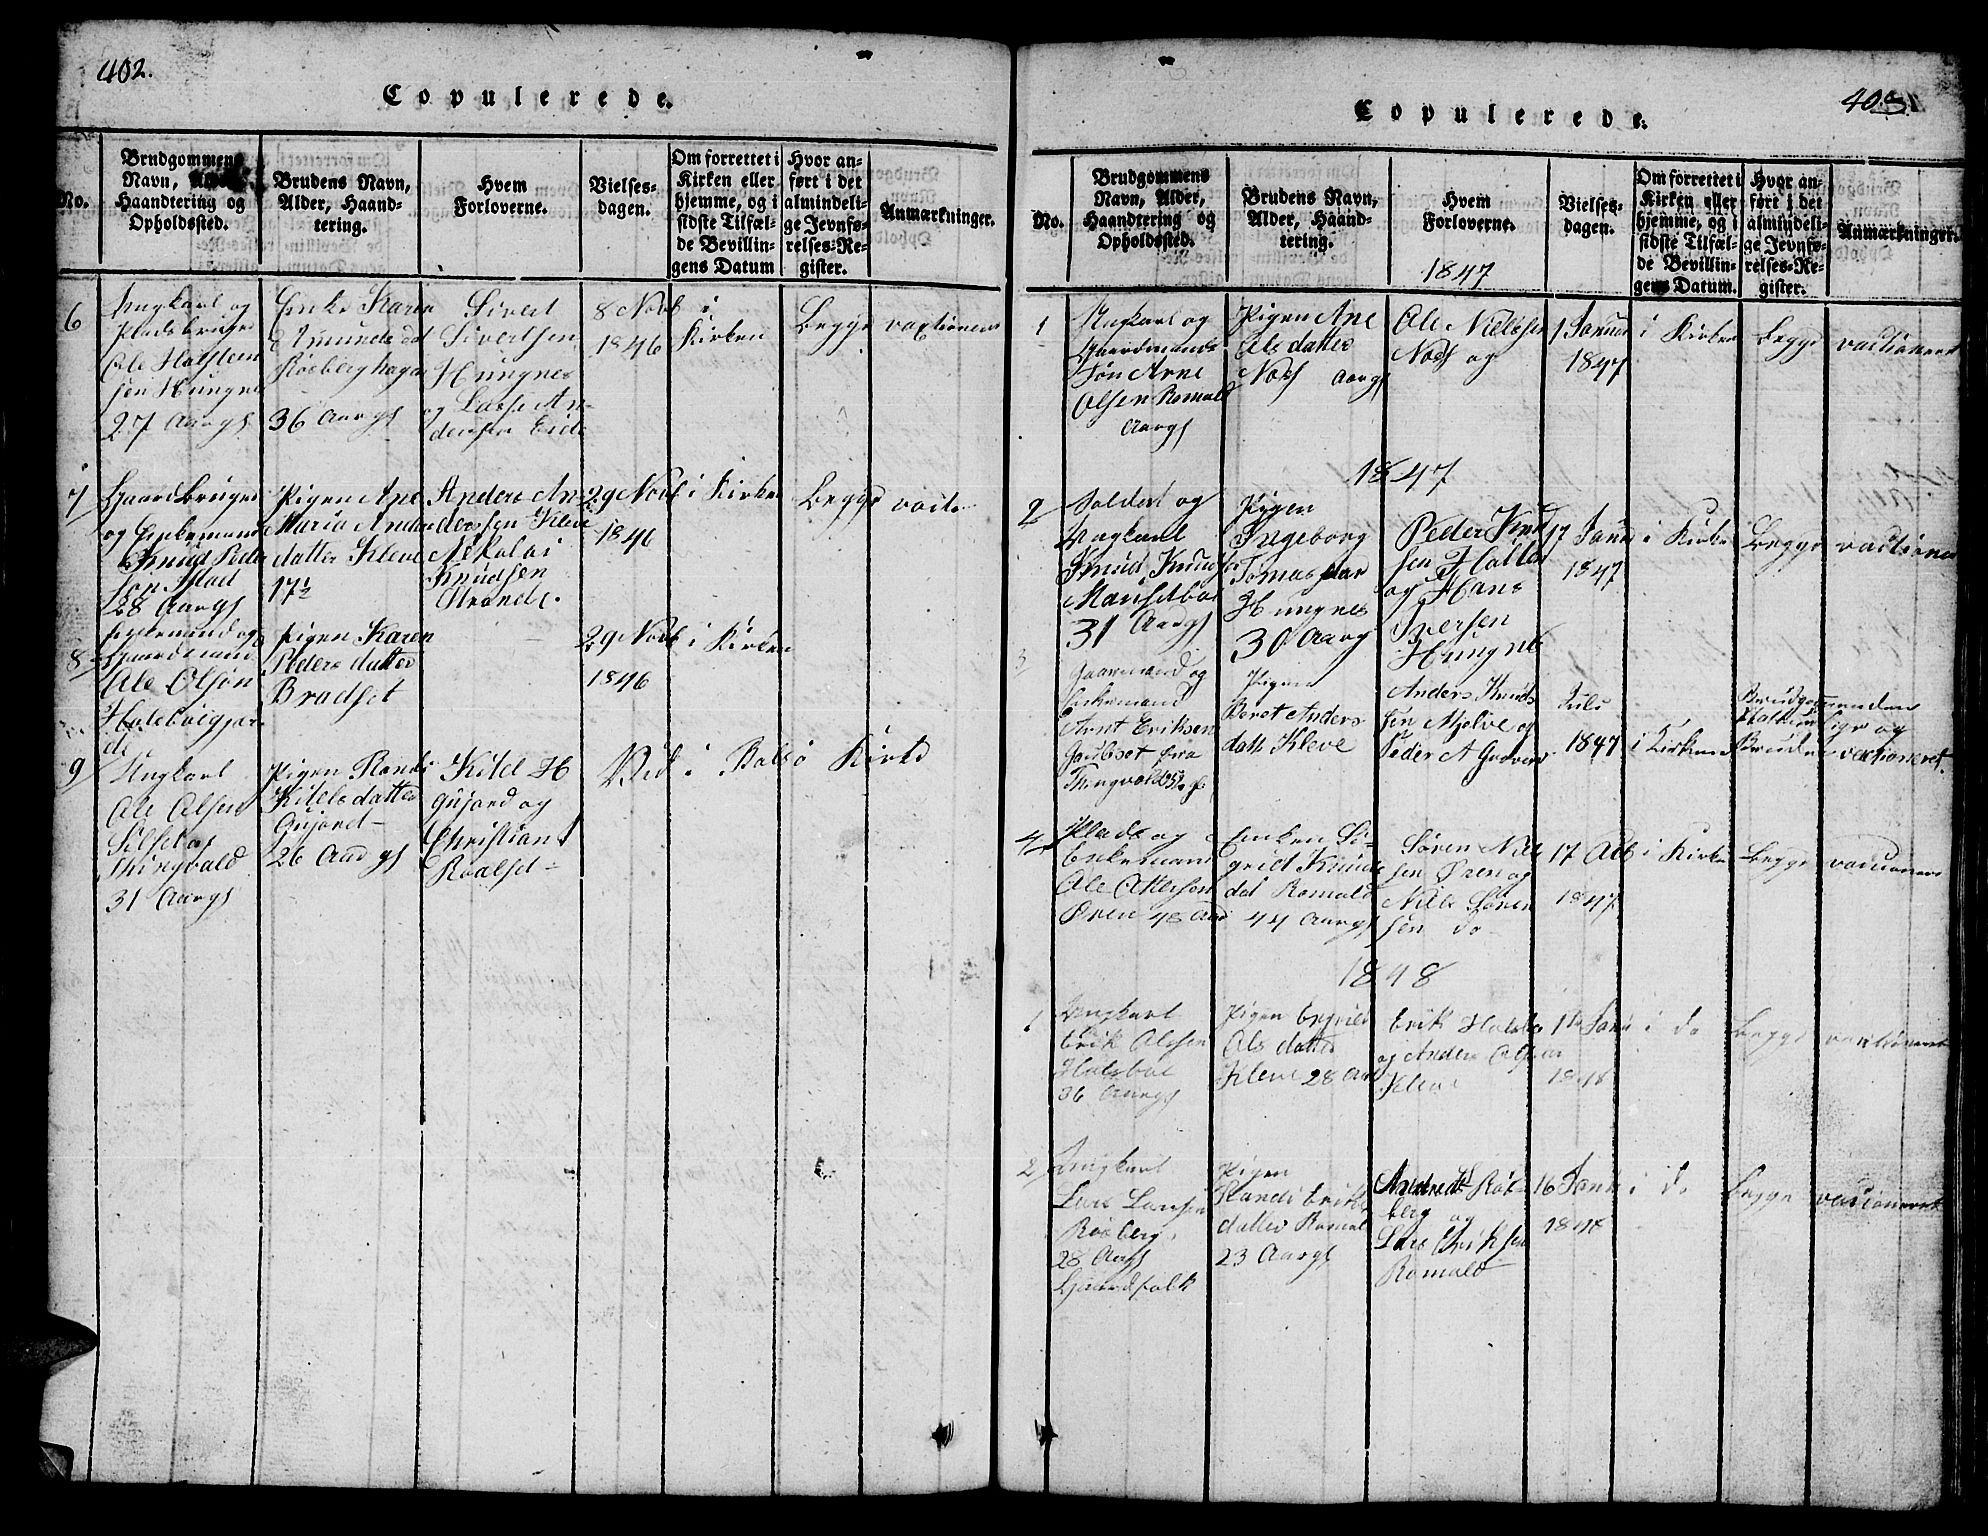 402.
Copulerede.
No.
Brudgommens
Navn, Alder,
Haandtering og
Opholdssted.
Brudens Navn,
Alder, Haand-
tering.
Hvem
Forloverne.
Vielses-
dagen.
Om forrettet i
Kirken eller
hjemme, og i
sidste Tilfæl-
de Bevillin-
gens Datum
Hvor an-
ført i det
almindeli-
ge Jevnfø-
relses-Re-
gister.
Anmærkninger.
6
Ungkarl og
Pladsbruger
Ole Halsten
sen Hungnes
27 Aargs
Enke Karen
Amunds dat
Røsberghagen
36 Aargs
Sivert
Sivertsen
Hungnes
og Lasse An-
dersen Eide
8 Novb
1846
i
Kirken
Begge
vactionere
7
Gaardbruger
og Enkemand
Knud Peder
sen Istad
28 Aargs
Pigen Ane
Maria Anders
datter Kleve
17½
Anders An
dersen Kleve
Nikolai
Knudsen
Strande.
29 Novb
1846
i Kirke
Begge
vacti
8
Enkemand og
Gaardmand
Ole Olsøn
de
Pigen Karen
Peders datter
Bradset
29 Novb
1846
i Kirken
9
Ungkarl
Ole Olsen
Silset af
Thingvold
31 Aargs
Pigen Randi
Kitels datter
Gujord
26 Aargs
Kild H
Gujord og
Christian
Roalset
Vid i Bolsø Kirke
403.
Copulerede.
No.
Brudgommens
Navn, Alder,
Haandtering og
Opholdssted.
Brudens Navn,
Alder, Haand-
tering.
Hvem
Forloverne.
1847
Vielses-
dagen.
Om forrettet i
Kirken eller
hjemme, og i
sidste Tilfæl-
de Bevillin-
gens Datum.
Hvor an-
ført i det
almindeli-
ge Jevnfø-
relses-Re-
gister.
Anmærkninger.
1
Ungkarl og
Gaardmands
Søn Arne
Olsen Romald
Aargs
Pigen Ane
Ols datter
Nøsf Aargs
Ole Nielssen
Nøsf og
1 Januar
1847
i Kirken
Begge
vactioneret
1847
2
Soldat og
Ungkarl
Knud Knudsen
Mausetbø
31 Aargs
Pigen
Ingeborg
Tomas dat
Hungnes
30 Aarg
Peder Knud
sen Hatle
og Hans
Iversen
Hungnes
17 Janu
1847
i Kirke
Begge
vactioner
3
Gaarmand og
Enkemand
Arnt Eriksen
Gaulset fra
Thingvold
Pigen
Beret Anders
datt Kleve
Anders Knuds
sen Mjelve og
Peder A
Juli
1847
i Kirken
Bruden
vactioneret.
4
Plads og
Enkemand
Ole Ottersen
Øren 48 Aar
Enken Si-
grid Knuds
dat Romald
44 Aargs
Søren Niel
sen Øren og
Niels Søren
sen do
17 Ocb
1847
i Kirke
Begge
vacioneret
1848
1
Ungkarl
Erik Olsen
Halsbøe
36 Aargs
Pigen
Ols datter
Kleve 28 Aar
Erik Halsbø
og Anders Olsen
Kleve
1te Janu
1848
i do
Begge
vactioneret
2
Ungkarl
Lars Larsen
Røsberg
28 Aargs
Gaardfolk
Pigen
Randi Eriks
datter Romal
23 Aargs
Anders Røs-
berg og
Lars Eriksen
Romald
16 Janu
1848
i do
Begge
vacioneret